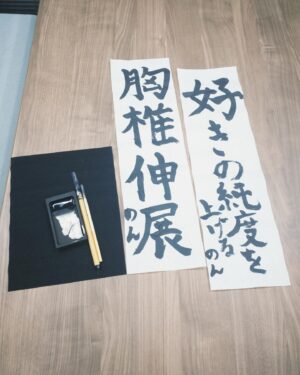 好きの純度を
上げる
のん
胸椎伸展
のん